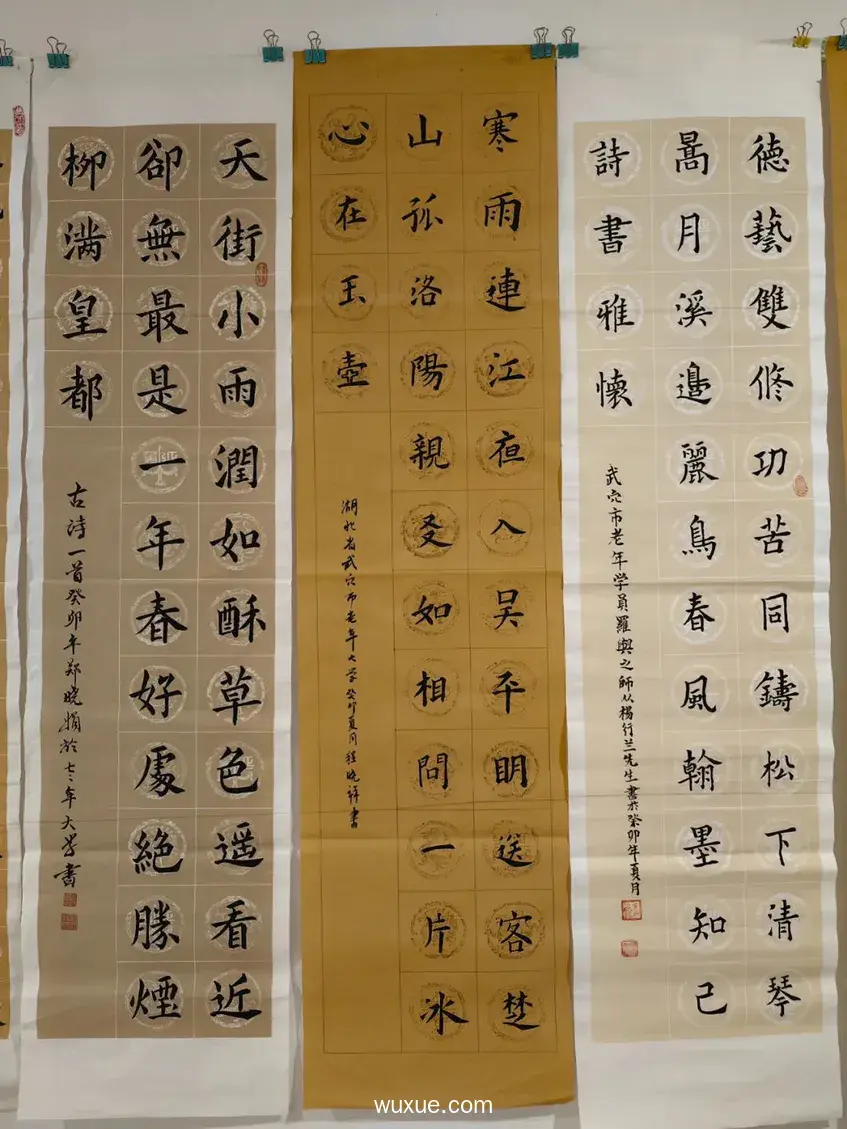 德藝雙修功苦同鑄松下清琴
暠月溪邊麗鳥春風翰墨知己
詩書雅懷
武穴市老年学員羅興之師从楊行兰先生書於癸卯年夏月
寒雨連江夜入吴平明送客楚
山孤洛陽親友如相問一片冰
心在玉壺
湖北省武穴市老年大学癸卯夏月程晓祥書
天街小雨潤如酥草色遥看近
卻無最是一年春好處絕勝煙
柳满皇都
古诗一首癸卯年郑晓娟於老年大学書
wuxue.com